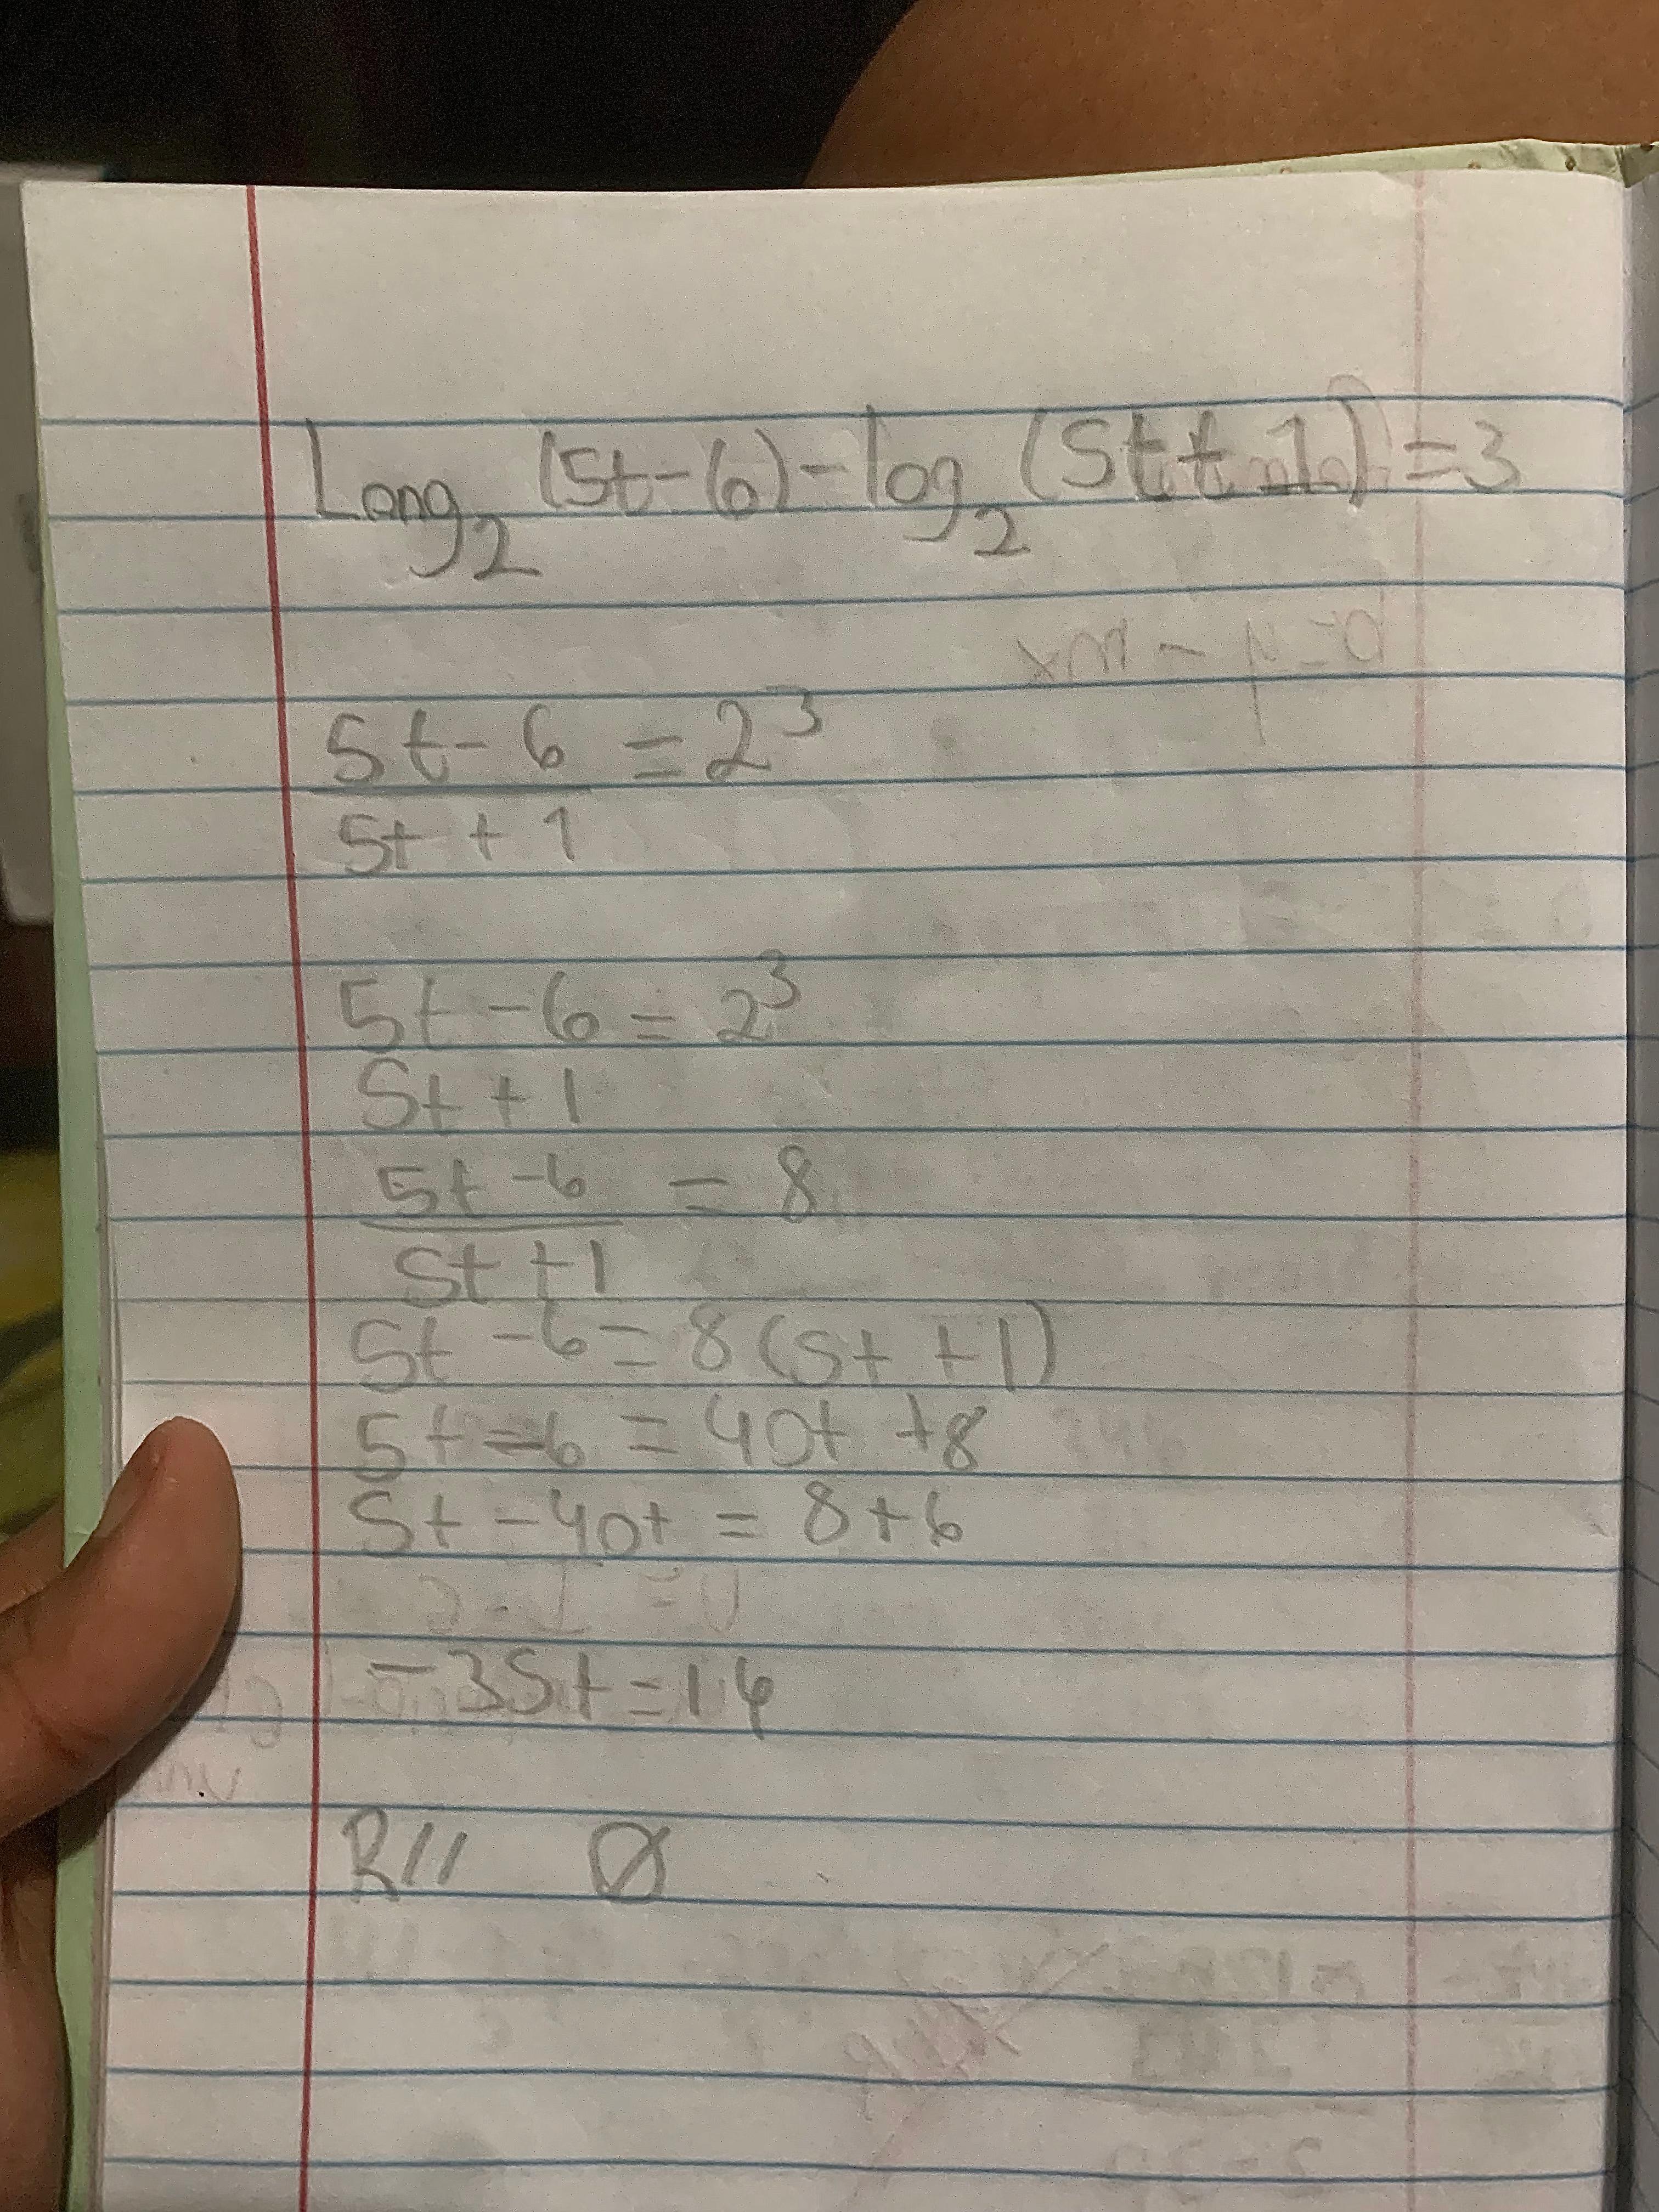 Long₂ (5t-6)-log₂ (5t+1)=3
5t-6 = 2³
5t + 1
5t -6 = 2³
5t + 1
5t -6 = 8
5t +1
5t -6 = 8(5t +1)
5t -6 = 40t +8
5t -40t = 8+6
-35t=14
R// Ø